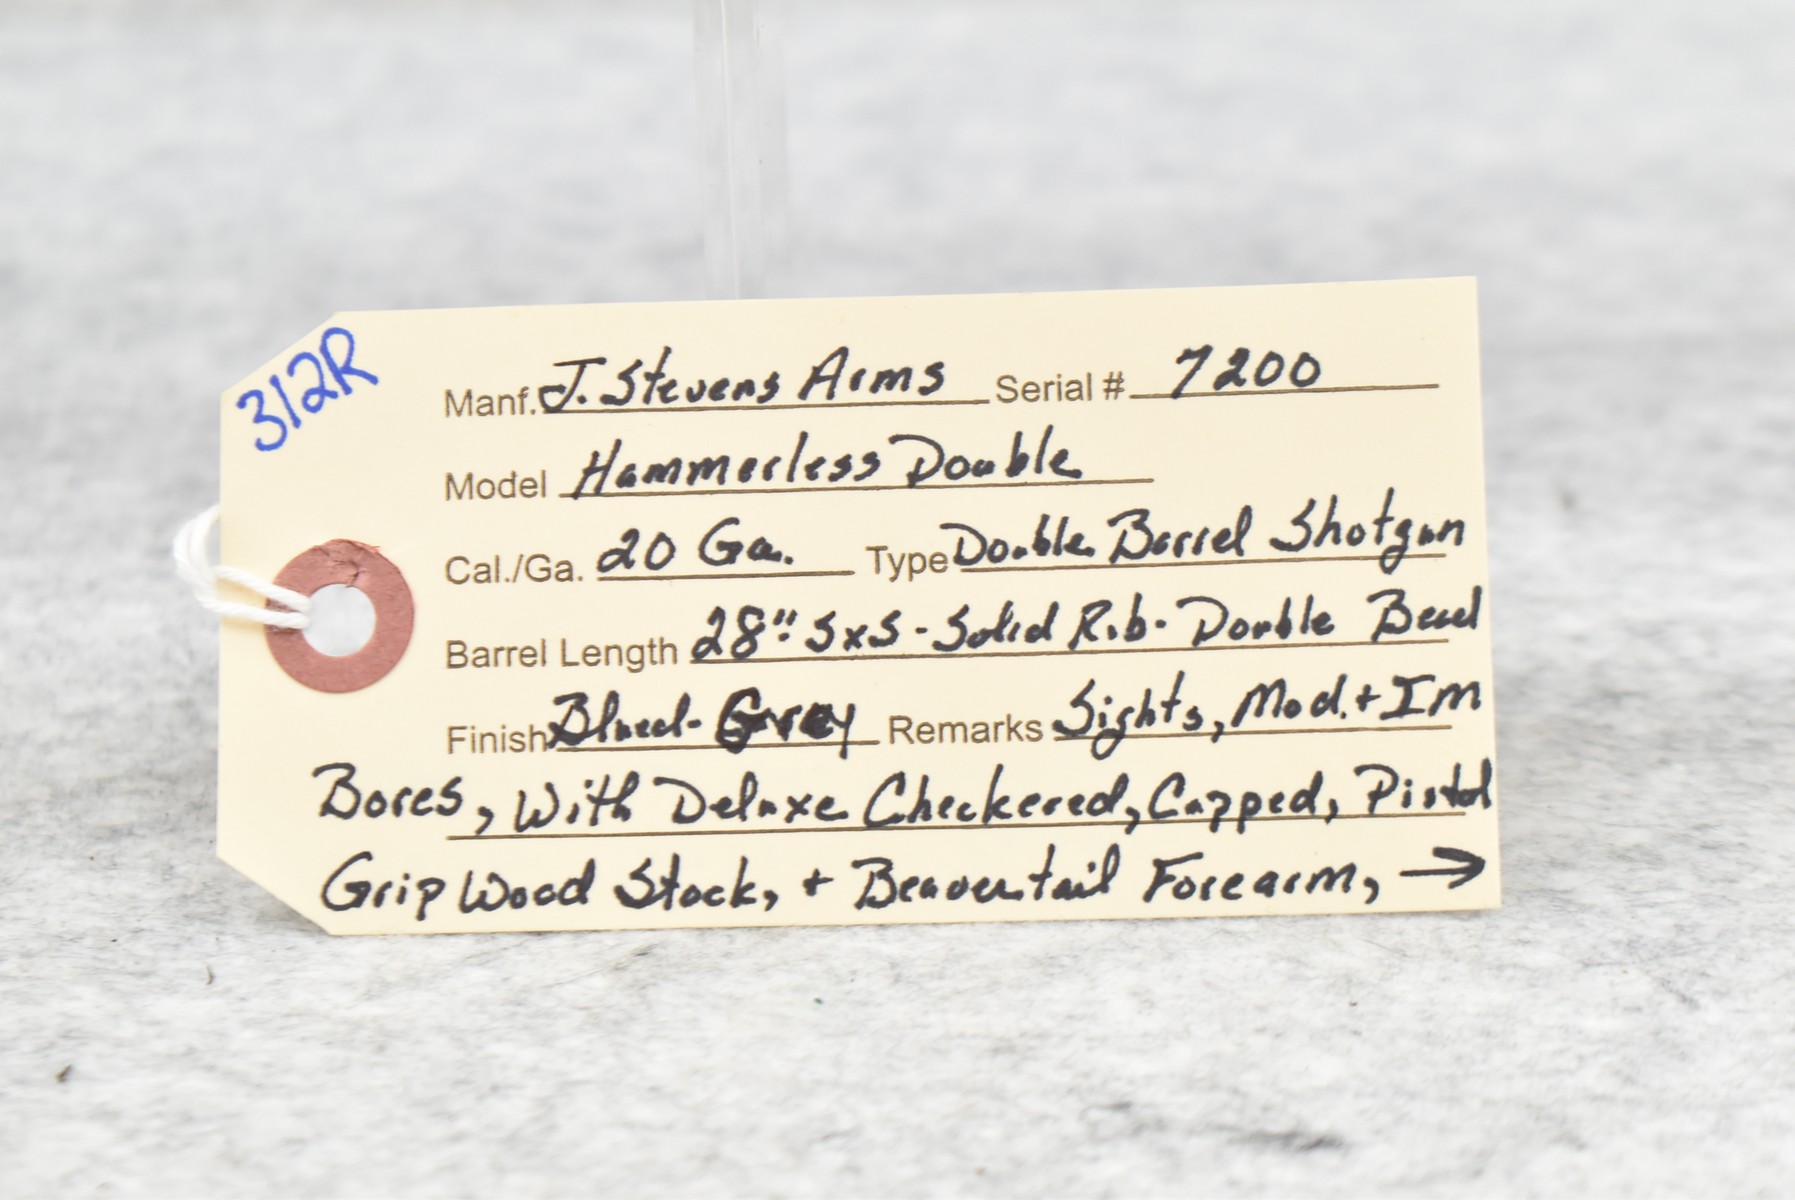 312R
Manf. J. Stevens Arms Serial # 7200
Model Hammerless Double
Cal./Ga. 20 Ga. Type Double Barrel Shotgun
Barrel Length 28" SxS - Solid Rib - Double Bead
Finish Blued-Grey Remarks Sights, Mod. + IM
Bores, With Deluxe Checkered, Capped, Pistol
Grip Wood Stock, + Beavertail Forearm, →